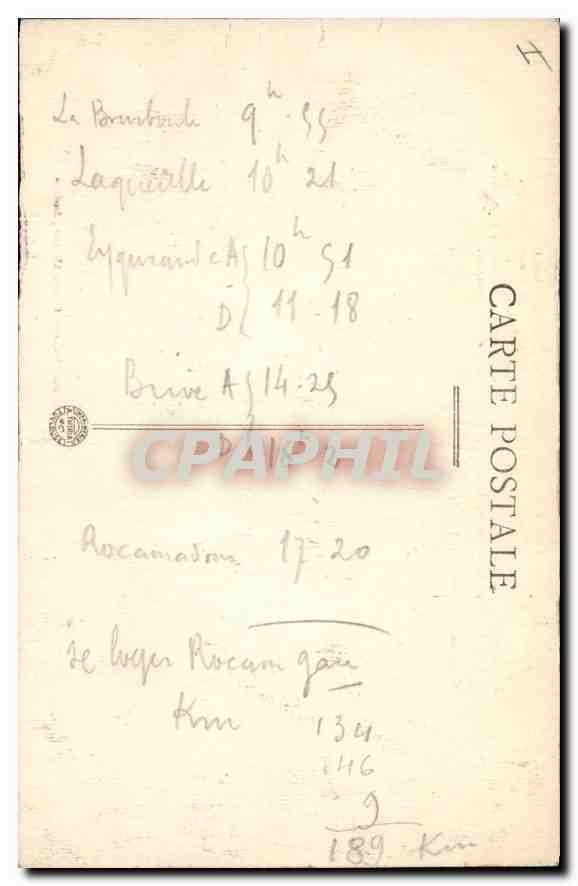 I
La Bourboule 9h.55
Laqueille 10h 21
Eygurande A 10h 51
D 11-18
Brive A 14-25
D
Rocamadour 17-20
se loger Rocam gare
Km 134
46
9
189 Km
CARTE POSTALE
CPAPHIL